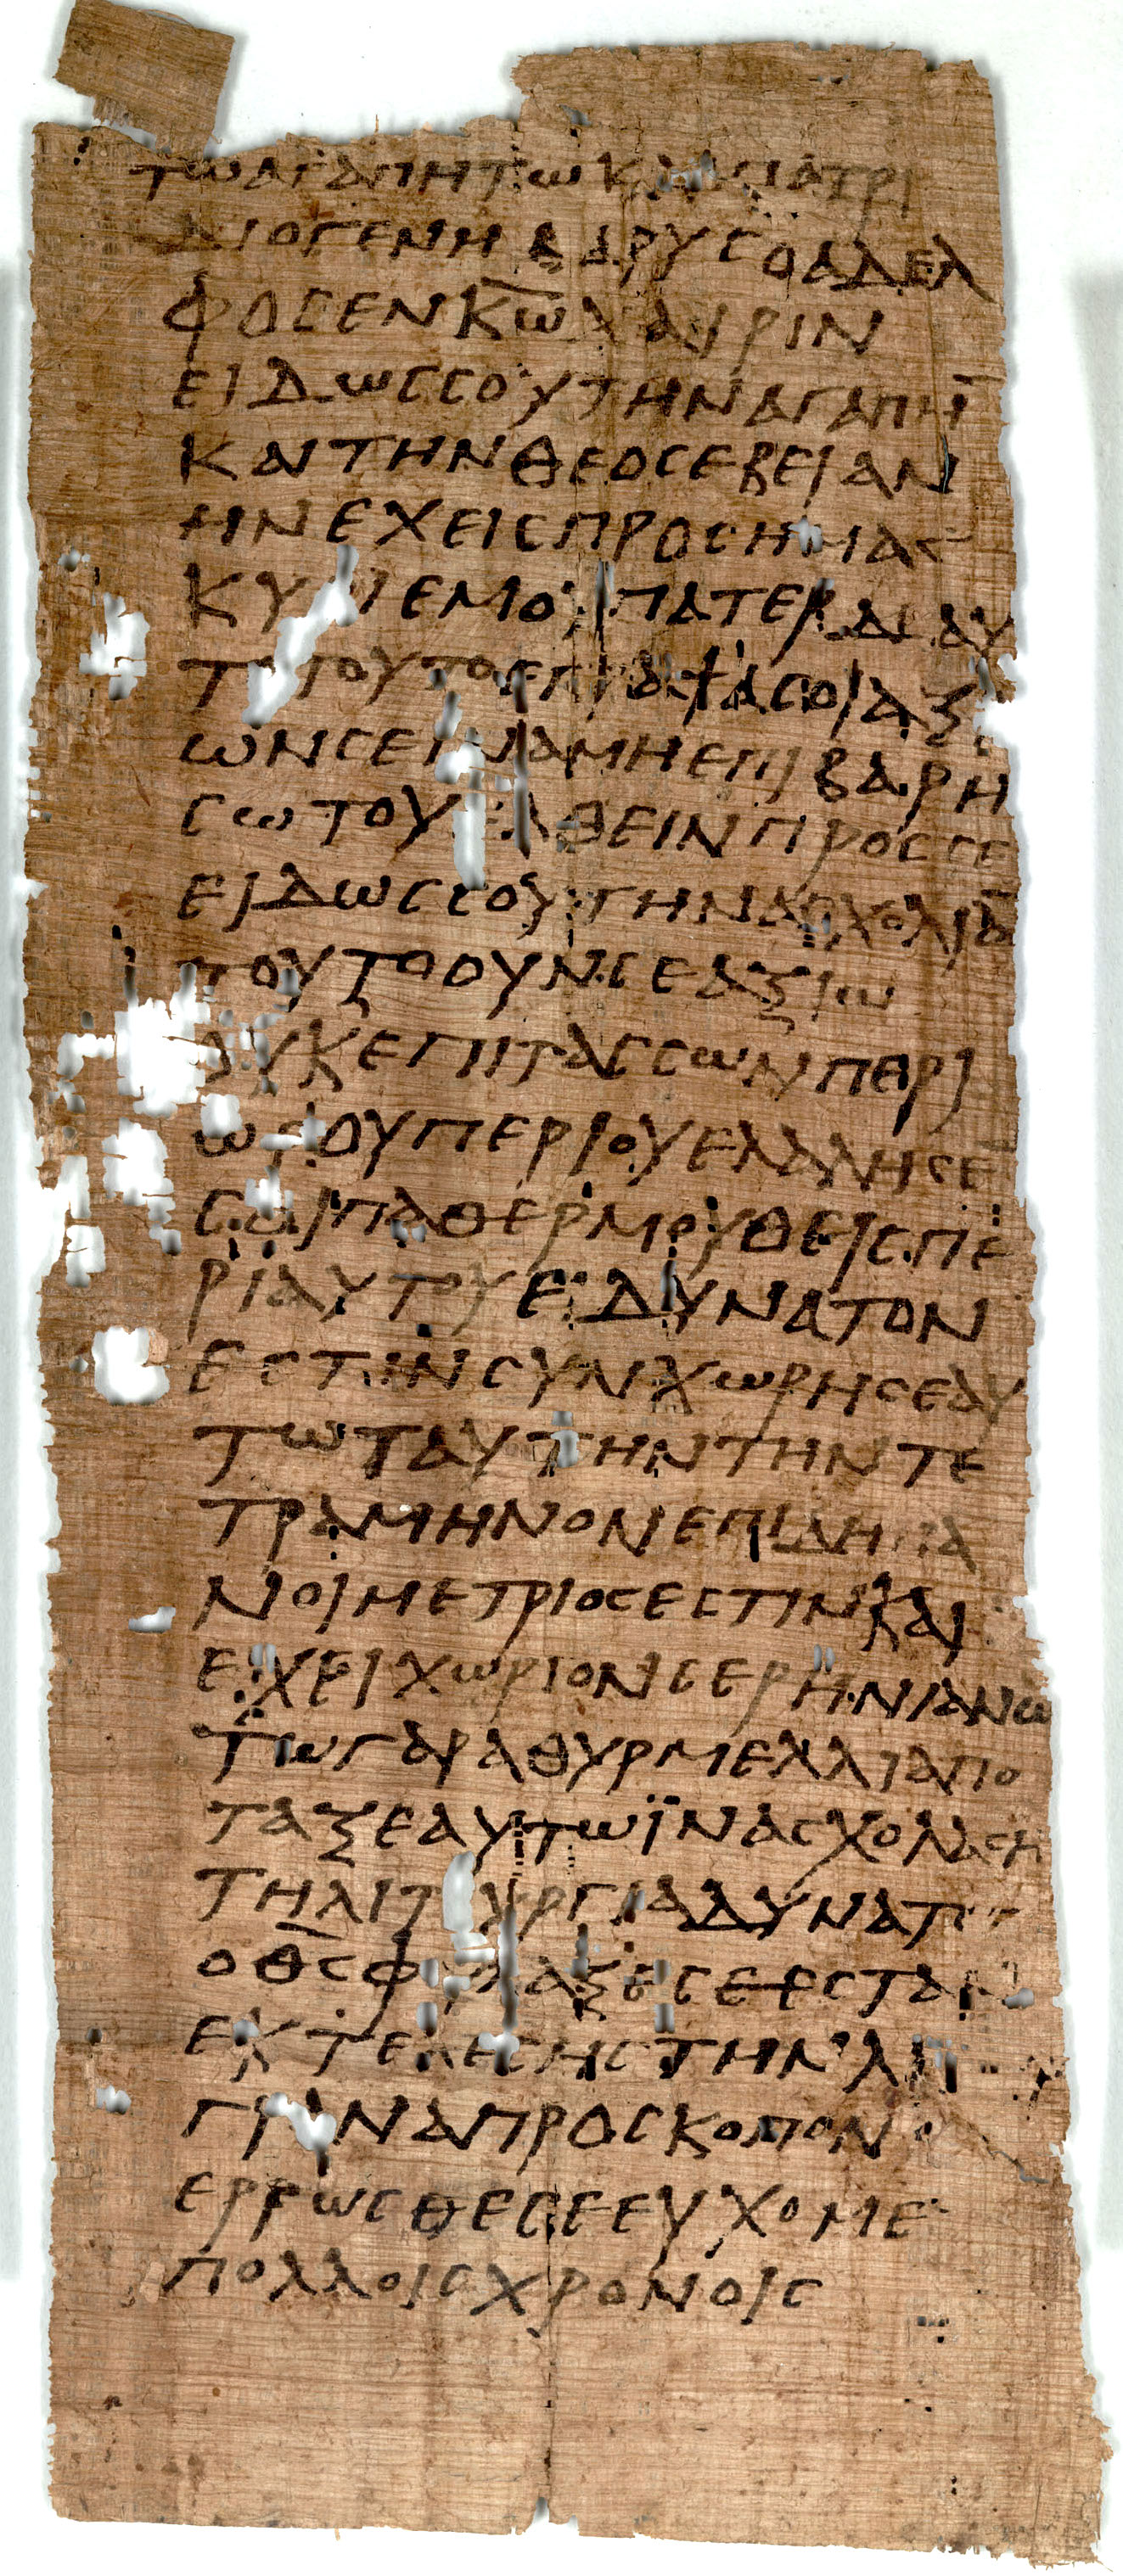 ΤΩΑΓΑΠΗΤΩΚΑΙΠΑΤΡΙ
ΔΙΟΓΕΝΗ ΟΑΔΕΛ
ΦΟΣΕΝΚΩΧΑΙΡΙΝ
ΕΙΔΩΣΣΟΥΤΗΝΑΓΑΠΗ
ΚΑΙΤΗΝΘΕΟΣΕΒΕΙΑΝ
ΗΝΕΧΕΙΣΠΡΟΣΗΜΑΣ
ΚΥΡΙΕΜΟΥΠΑΤΕΡΔΙΑΥ
ΤΟΥΤΟΥΤΟΕΓΡΑΨΑΣΟΙΑΞΙ
ΩΝΣΕΙΝΑΜΗΕΠΙΒΑΡΗ
ΣΩΤΟΥΕΛΘΕΙΝΠΡΟΣΣΕ
ΕΙΔΩΣΣΟΥΤΗΝΑΣΧΟΛΙΑ
ΤΟΥΤΟΟΥΝΣΕΑΞΙΩ
ΟΥΚΕΠΙΤΑΣΣΩΝΠΕΡΙ
ΩΡΟΥΠΕΡΙΟΥΕΛΑΛΗΣΕ
ΣΟΙΠΑΘΕΡΜΟΥΘΕΙΣΠΕ
ΡΙΑΥΤΟΥΕΙΔΥΝΑΤΟΝ
ΕΣΤΙΝΣΥΝΧΩΡΗΣΕΑΥ
ΤΩΤΑΥΤΗΝΤΗΝΤΕ
ΤΡΑΜΗΝΟΝΕΠΙΔΗΠΑ
ΝΟΙΜΕΤΡΙΟΣΕΣΤΙΝΚΑΙ
ΕΧΕΙΧΩΡΙΟΝΣΕΡΗΝΙΑΝΩ
ΤΩΓΑΡΑΘΥΡΜΕΛΛΙΑΠΟ
ΤΑΞΕΑΥΤΩΪΝΑΣΧΟΛΑΣΗ
ΤΗΛΙΤΟΥΡΓΙΑΔΥΝΑΤΟΣ
ΟΘΣΦΥΛΑΞΕΣΕΕΣΤΑΝ
ΕΚΤΕΛΕΣΗΣΤΗΝΛΙΤΟΥΡ
ΓΙΑΝΑΠΡΟΣΚΟΠΟΝ
ΕΡΡΩΣΘΕΣΕΕΥΧΟΜΕ
ΠΟΛΛΟΙΣΧΡΟΝΟΙΣ